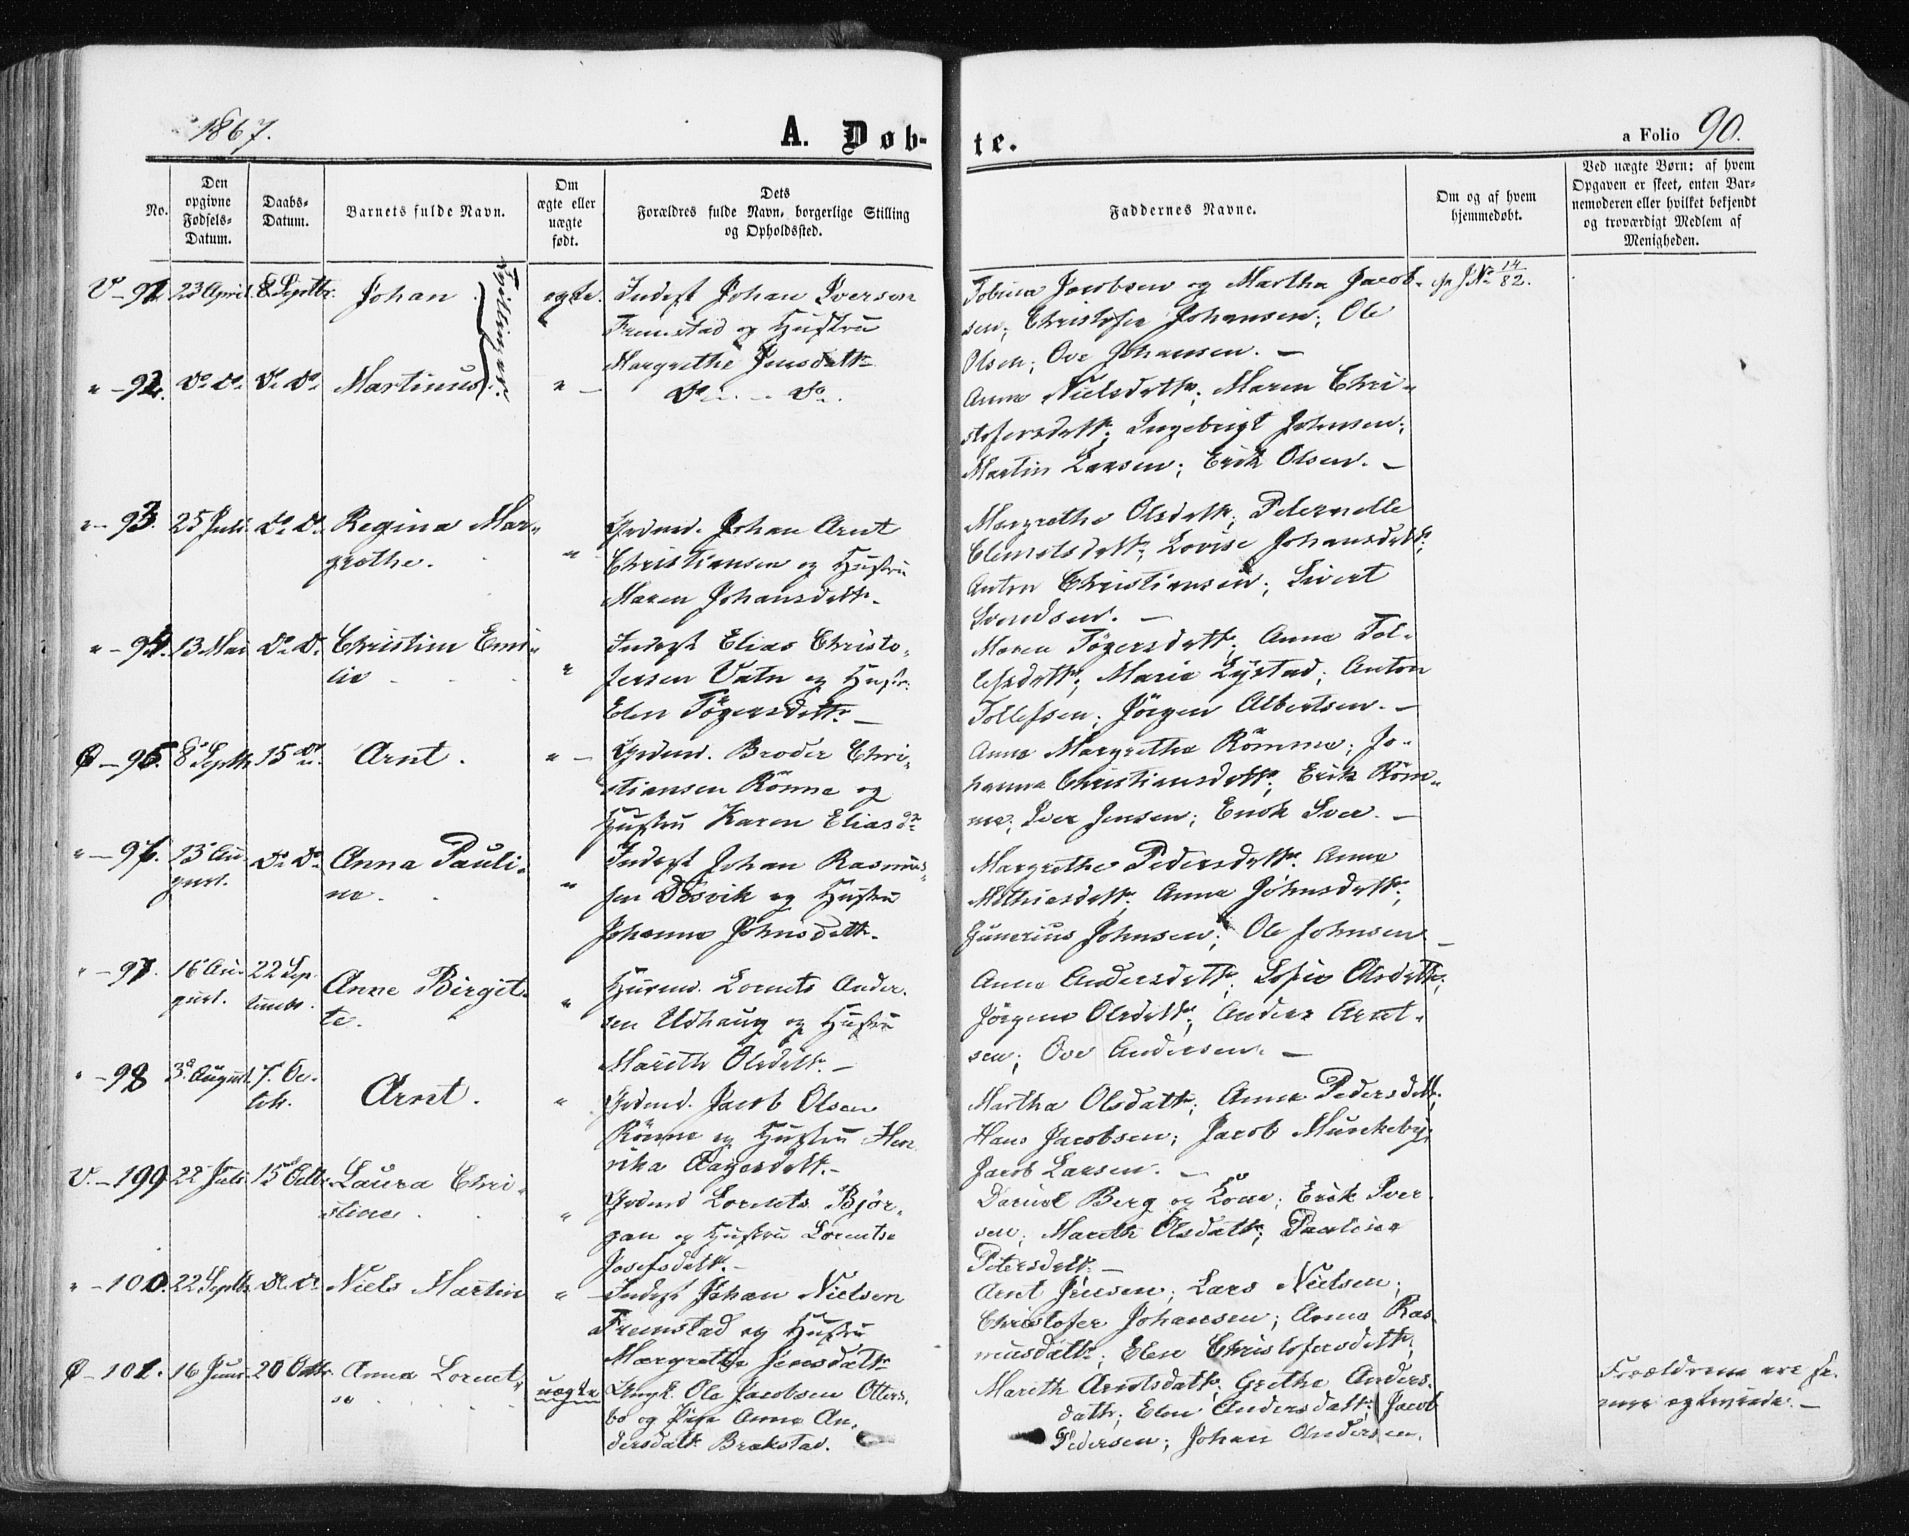 1867.
A. Døb-
te.
a Folio 90.
No.
Den
opgivne
Fødsels-
Datum.
Daabs-
Datum.
Barnets fulde Navn.
Om
ægte eller
uægte
født.
Dets
Forældres fulde Navn, borgerlige Stilling
og Opholdssted.
Faddernes Navne.
Om og af hvem
hjemmedøbt.
Ved uægte Børn: af hvem
Opgaven er skeet, enten Bar-
nemoderen eller hvilket bekjendt
og troværdigt Medlem af
Menigheden.
V - 91. 23 April. 8 Septbr. Johan ægte.
Tvillinger.
Inderst Johan Iversen
Fremstad og Hustru
Margrethe Jensdatt.
Tobine Jacobsen og Martha Jacob-
sen; Christofer Johansen; Ole
Olsen; Ove Johansen. —
14
82.
" - 92. Do Do. Do Do. Martinus " —
Do — Do.
Anne Nielsdatt.; Maren Chri-
stofersdatt.; Ingebrigt Johnsen;
Martin Larsen; Erik Olsen. —
" - 93. 25 Juli. Do Do. Regina Mar-
grethe. "
Grdmd. Johan Arnt
Christiansen og Hustru
Maren Johansdatt.
Margrethe Olsdatt.; Peternelle
Clemetsdatt.; Lovise Johansdatt.;
Anton Christiansen; Sivert
Svendsen. —
" - 94. 13 Mai Do Do. Christine Emi-
lie "
Inderst Elias Christo-
fersen Vatn og Hustr.
Elen Tögersdatt. —
Maren Tögersdatt.; Anne Tol-
lefsdatt.; Marie Lystad; Anton
Tollefsen; Jörgen Albertsen. —
Ø - 95. 8 Septbr. 15 do Arnt. " —
Grdmd. Broder Chri-
stiansen Rönne og
Hustru Karen Eliasd.
Anne Margrethe Römme; Jo-
hanna Christiansdatt.; Erik Röm-
me; Iver Jensen; Enok Iver. —
" - 96. 13 Au-
gust. Do Do. Anna Pauli-
ne. "
Inderst Johan Rasmus-
sen Døsvik og Hustru
Johanna Johnsdatt.
Margrethe Pedersdatt. Anne
Mathiasdatt.; Anne Johnsdatt.;
Gunerius Johnsen; Ole Johnsen —
" - 97. 16 Au-
gust. 22 Sep-
tembr. Anne Birgit-
te. "
Husmd. Lornts Ander-
sen Udhaug og Hustru
Marith Olsdatt. —
Anne Andersdatt.; Sofie Olsdatt.;
Jörgine Olsdatt.; Anders Arnt-
sen; Ove Andersen. —
" - 98 3d August. 7. Oc-
tobr. Arnt. "
Grdmd. Jacob Olsen
Rönne og Hustru Hen-
rika Aagesdatt. —
Martha Olsdatt.; Anne Pedersdatt.;
Hans Jacobsen; Jacob Munkeby;
Jacob Larsen. —
V. - 199 22 Juli 15 Octbr. Laura Chri-
stine "
Grdmd Lorents Bjør-
gan og Hustru Lorentse
Josefsdatt. —
Daniel Berg og Kone; Erik Iver-
sen; Marith Olsdatt.; Pauline
Petersdatt. —
" - 100. 22 Septbr. do do Niels Martin "
Inderst Johan Nielsen
Fremstad og Hustru
Margrethe Jensdatt.
Arnt Jensen; Lars Nielsen;
Christofer Johansen; Anne Ras-
musdatt.; Elen Christofersdatt.;
Ø - 101. 16 Juni. 20 Octbr. Anna Lornt-
se uægte
Ungk. Ole Jacobsen Otters-
bo og Pige Anne An-
dersdatt. Brækstad.
Marith Arntsdatt.; Grethe Anders-
datt.; Elen Andersdatt.; Jacob
Pedersen; Johan Andersen.
Forældrene ere